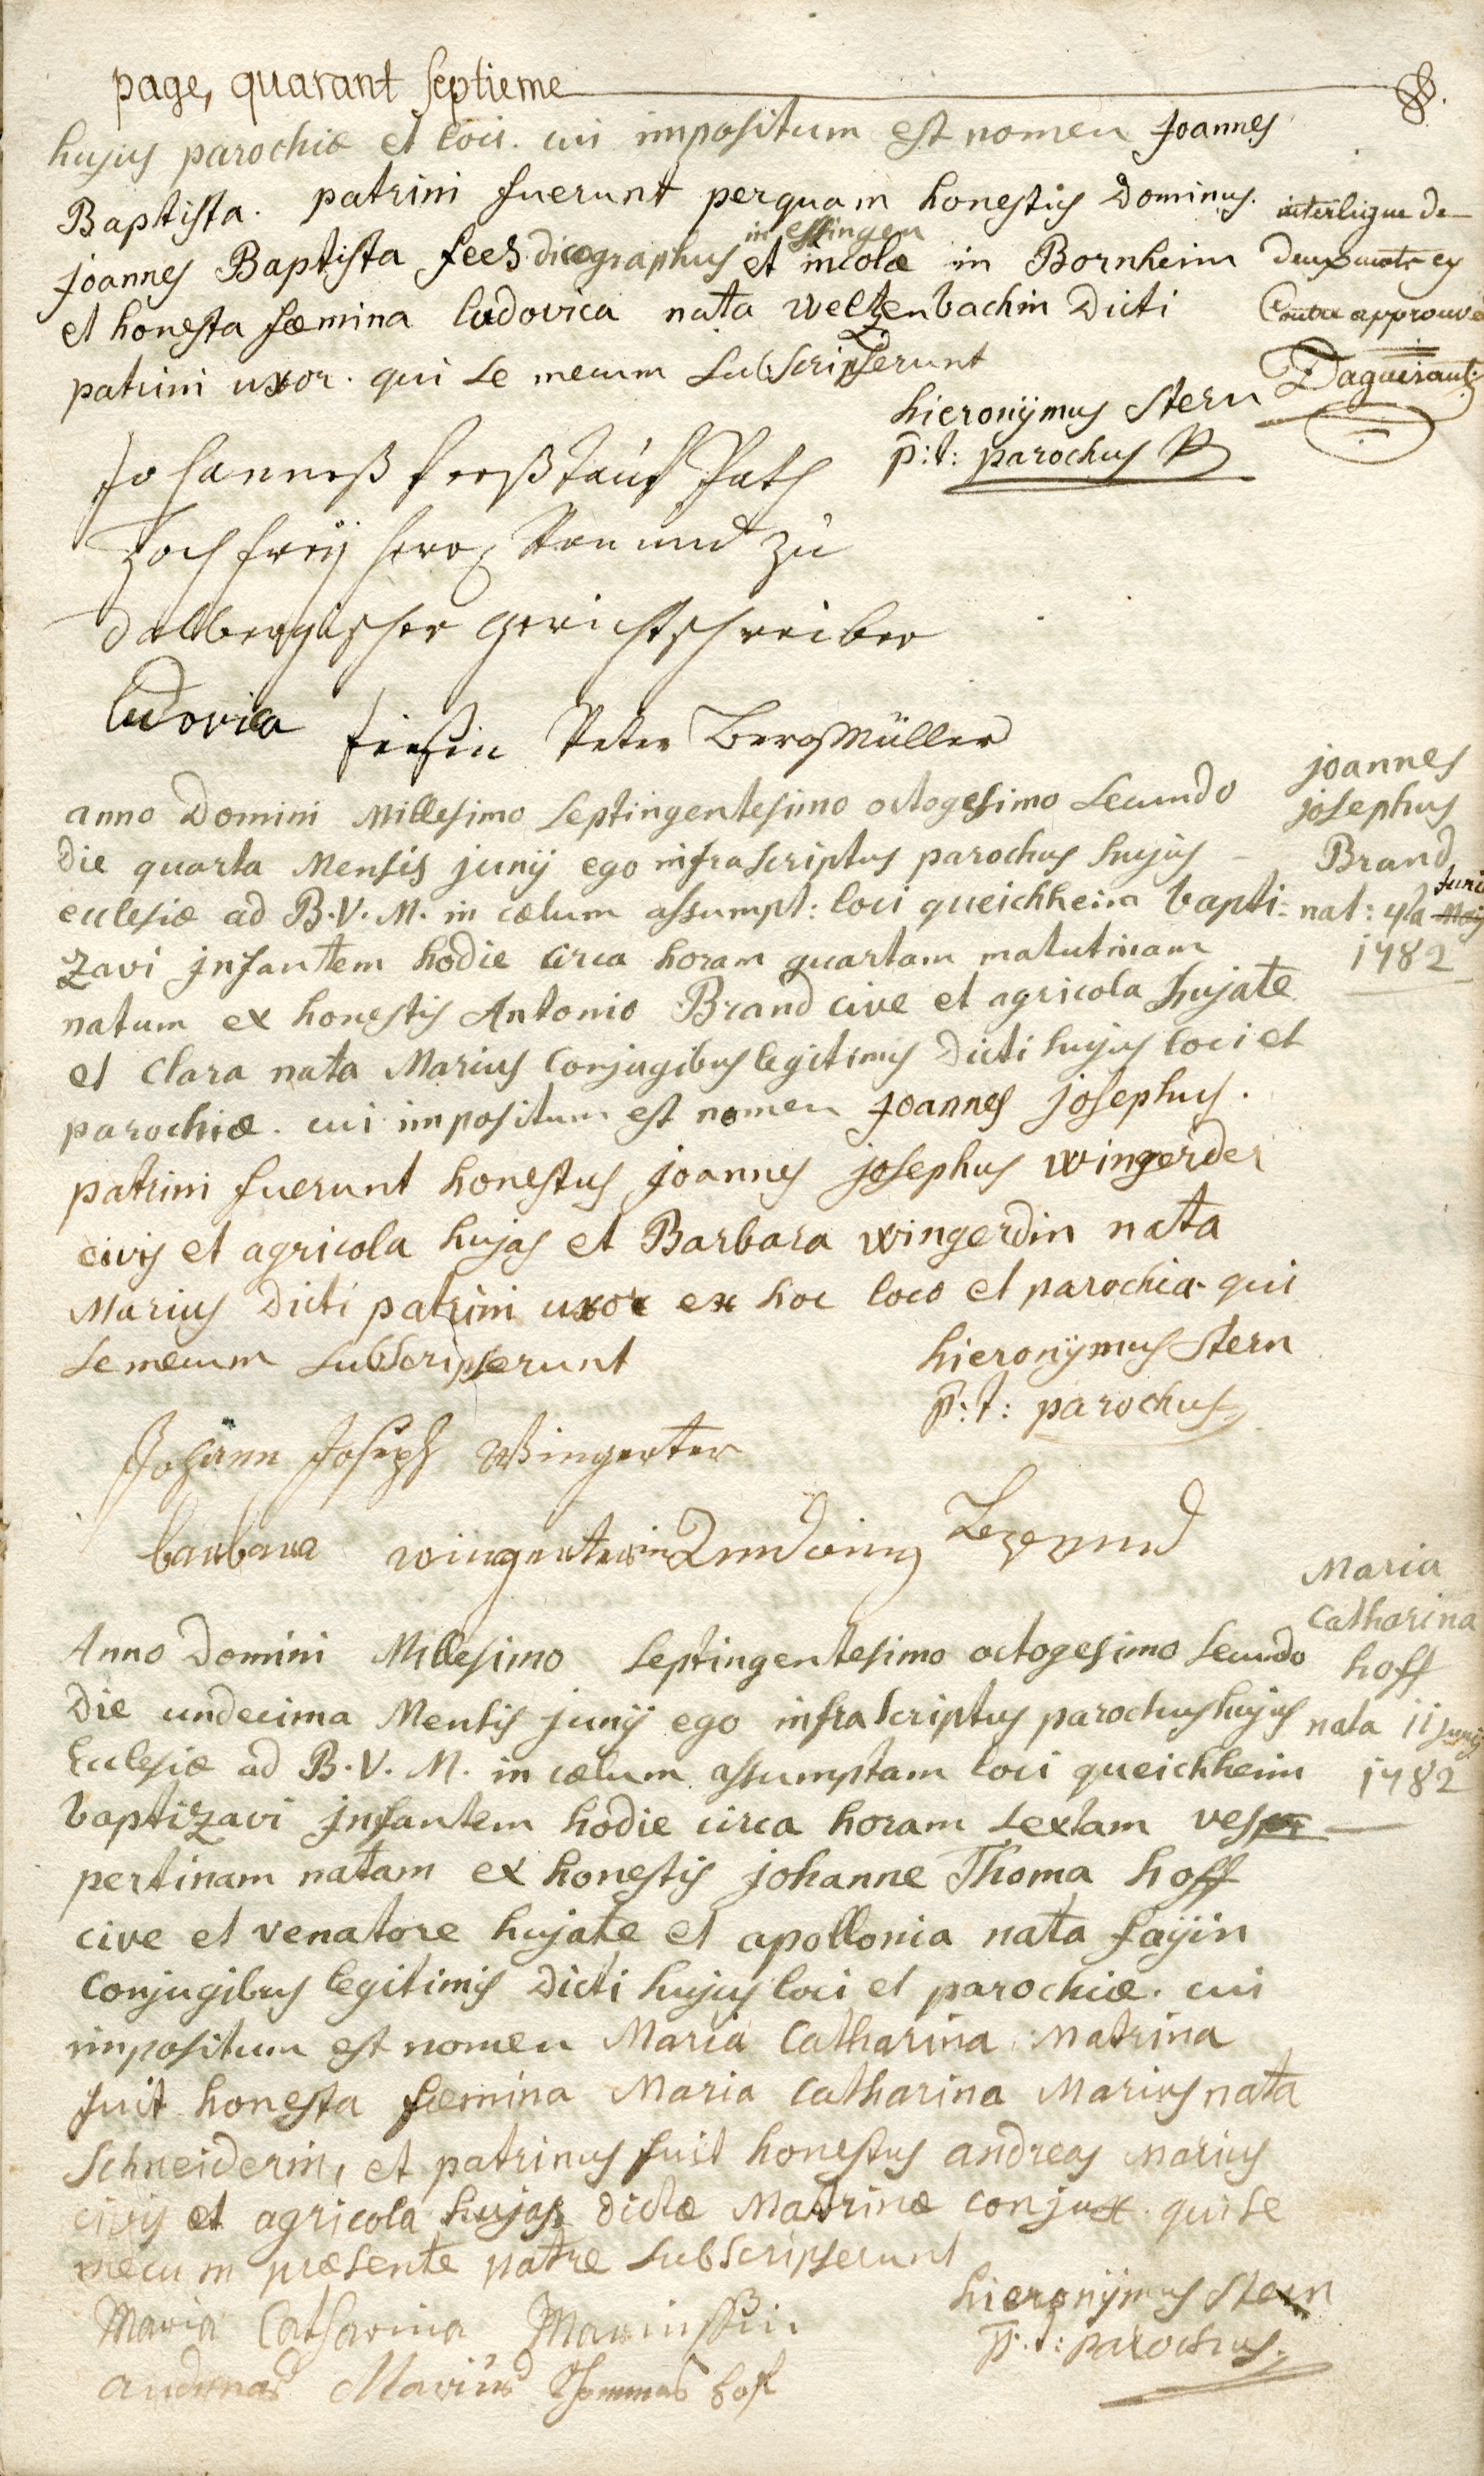 page, quarant septieme
hujus parochiæ et loci. cui impositum est nomen Joannes
Baptista. patrini fuerunt perquam honestus Dominus
in essingen
Joannes Baptista fees dicographus et incola in Bornheim
et honesta fœmina ludovica nata weltzenbachin Dicti
patrini uxor. qui se mecum subscripserunt
interligne de
deux mots cy
contre approuvé
Daguerault
hieronÿmus Stern
p:t: parochus
Johannes feeß tauf Path
Hoch freÿ herr Von und zu
Dalbergischer gerichtschreiber
ludovica feesin Peter BergMüller
anno Domini Millesimo septingentesimo octogesimo secundo
Die quarta Mensis junÿ ego infrascriptus parochus hujus
ecclesiæ ad B.V.M. in cælum assumpt: loci queichheim bapti-
zavi jnfantem hodie circa horam quartam matutinam
natum ex honestis Antonio Brand cive et agricola hujate
et Clara nata Marius Conjugibus legitimis Dicti hujus loci et
parochiæ. cui impositum est nomen Joannes josephus.
patrini fuerunt honestus joannes josephus wingerder
civis et agricola hujas et Barbara wingerdin nata
Marius Dicti patrini uxor ex hoc loco et parochia qui
se mecum subscripserunt
joannes
josephus
Brand
nat: 4ta Maÿ junÿ
1782
hieronÿmus Stern
p:t: parochus
Johann Joseph Wingerter
barbara wingerterin
Anno Domini Millesimo septingentesimo octogesimo secundo
Die undecima Mensis junÿ ego infrascriptus parochus hujus
Ecclesiæ ad B.V.M. in cælum assumptam loci queichheim
baptizavi jnfantem hodie circa horam sextam vesper
pertinam natam ex honestis johanne Thoma hoff
cive et venatore hujate et apollonia nata faÿin
Conjugibus legitimis Dicti hujus loci et parochiæ. cui
impositum est nomen Maria Catharina Matrina
fuit honesta fœmina Maria Catharina Marius nata
Schneiderin, et patrinus fuit honestus andreas Marius
civis et agricola hujas dictæ Matrinæ conjux. qui se
mecum præsente patre subscripserunt
Maria
Catharina
hoff
nata 11 junÿ
1782
hieronÿmus Stern
p:t: parochus.
Maria Catharina Mariussin
andreas Marius Thommas hoff